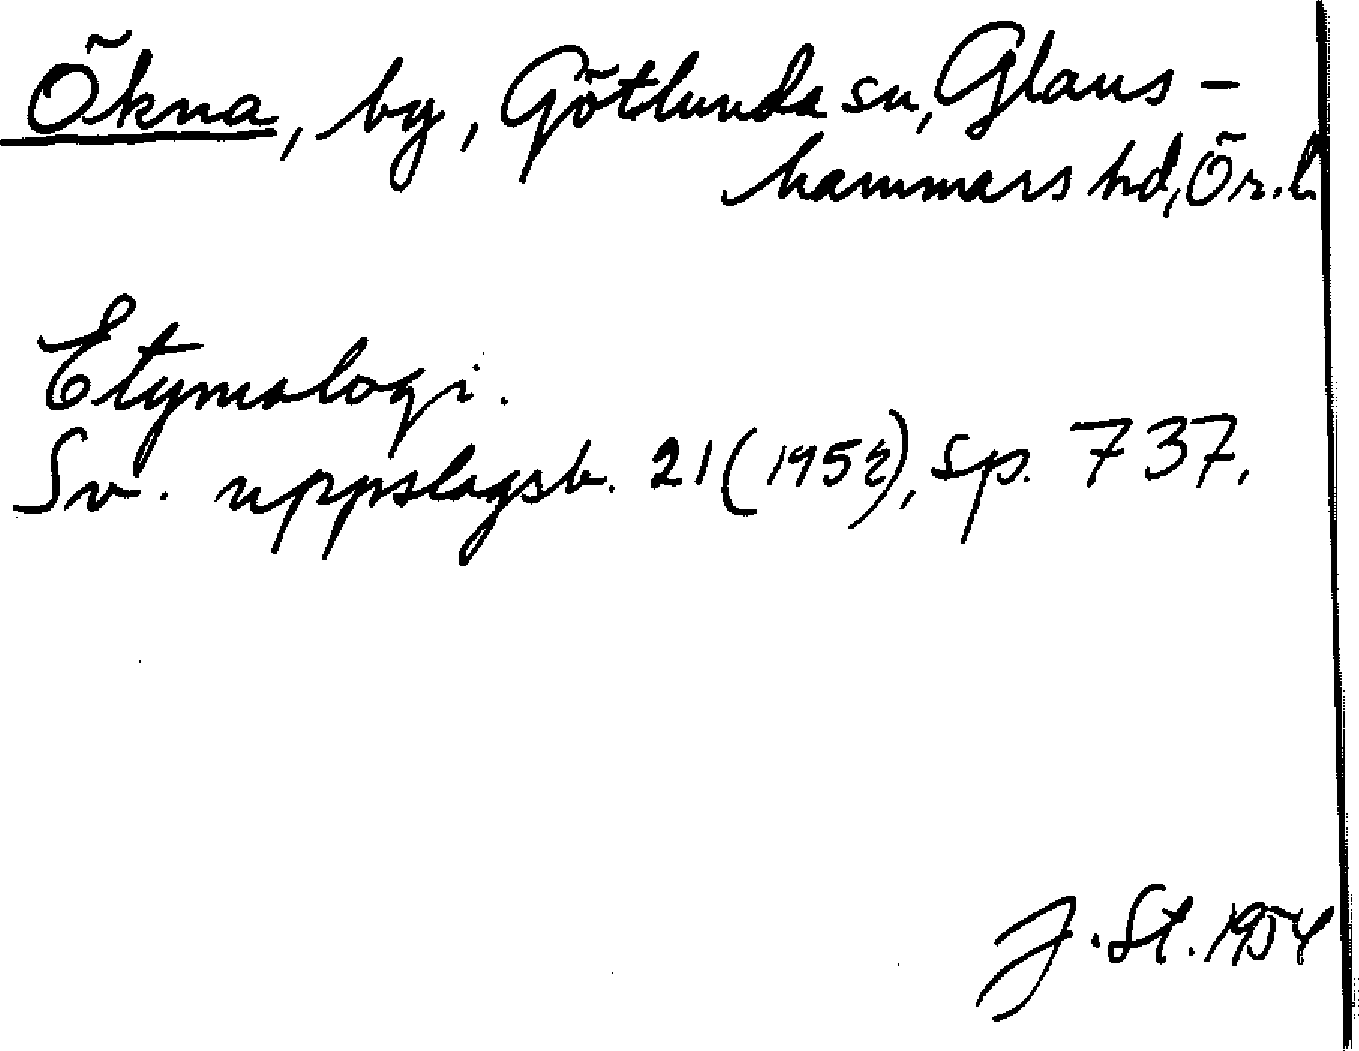 Ökna, by, Götlunda sn, Glans-
hammars hd, Ör. l.
Etymologi.
Sv. uppslagsb. 21 (1952), sp. 737.
J. St. 1954